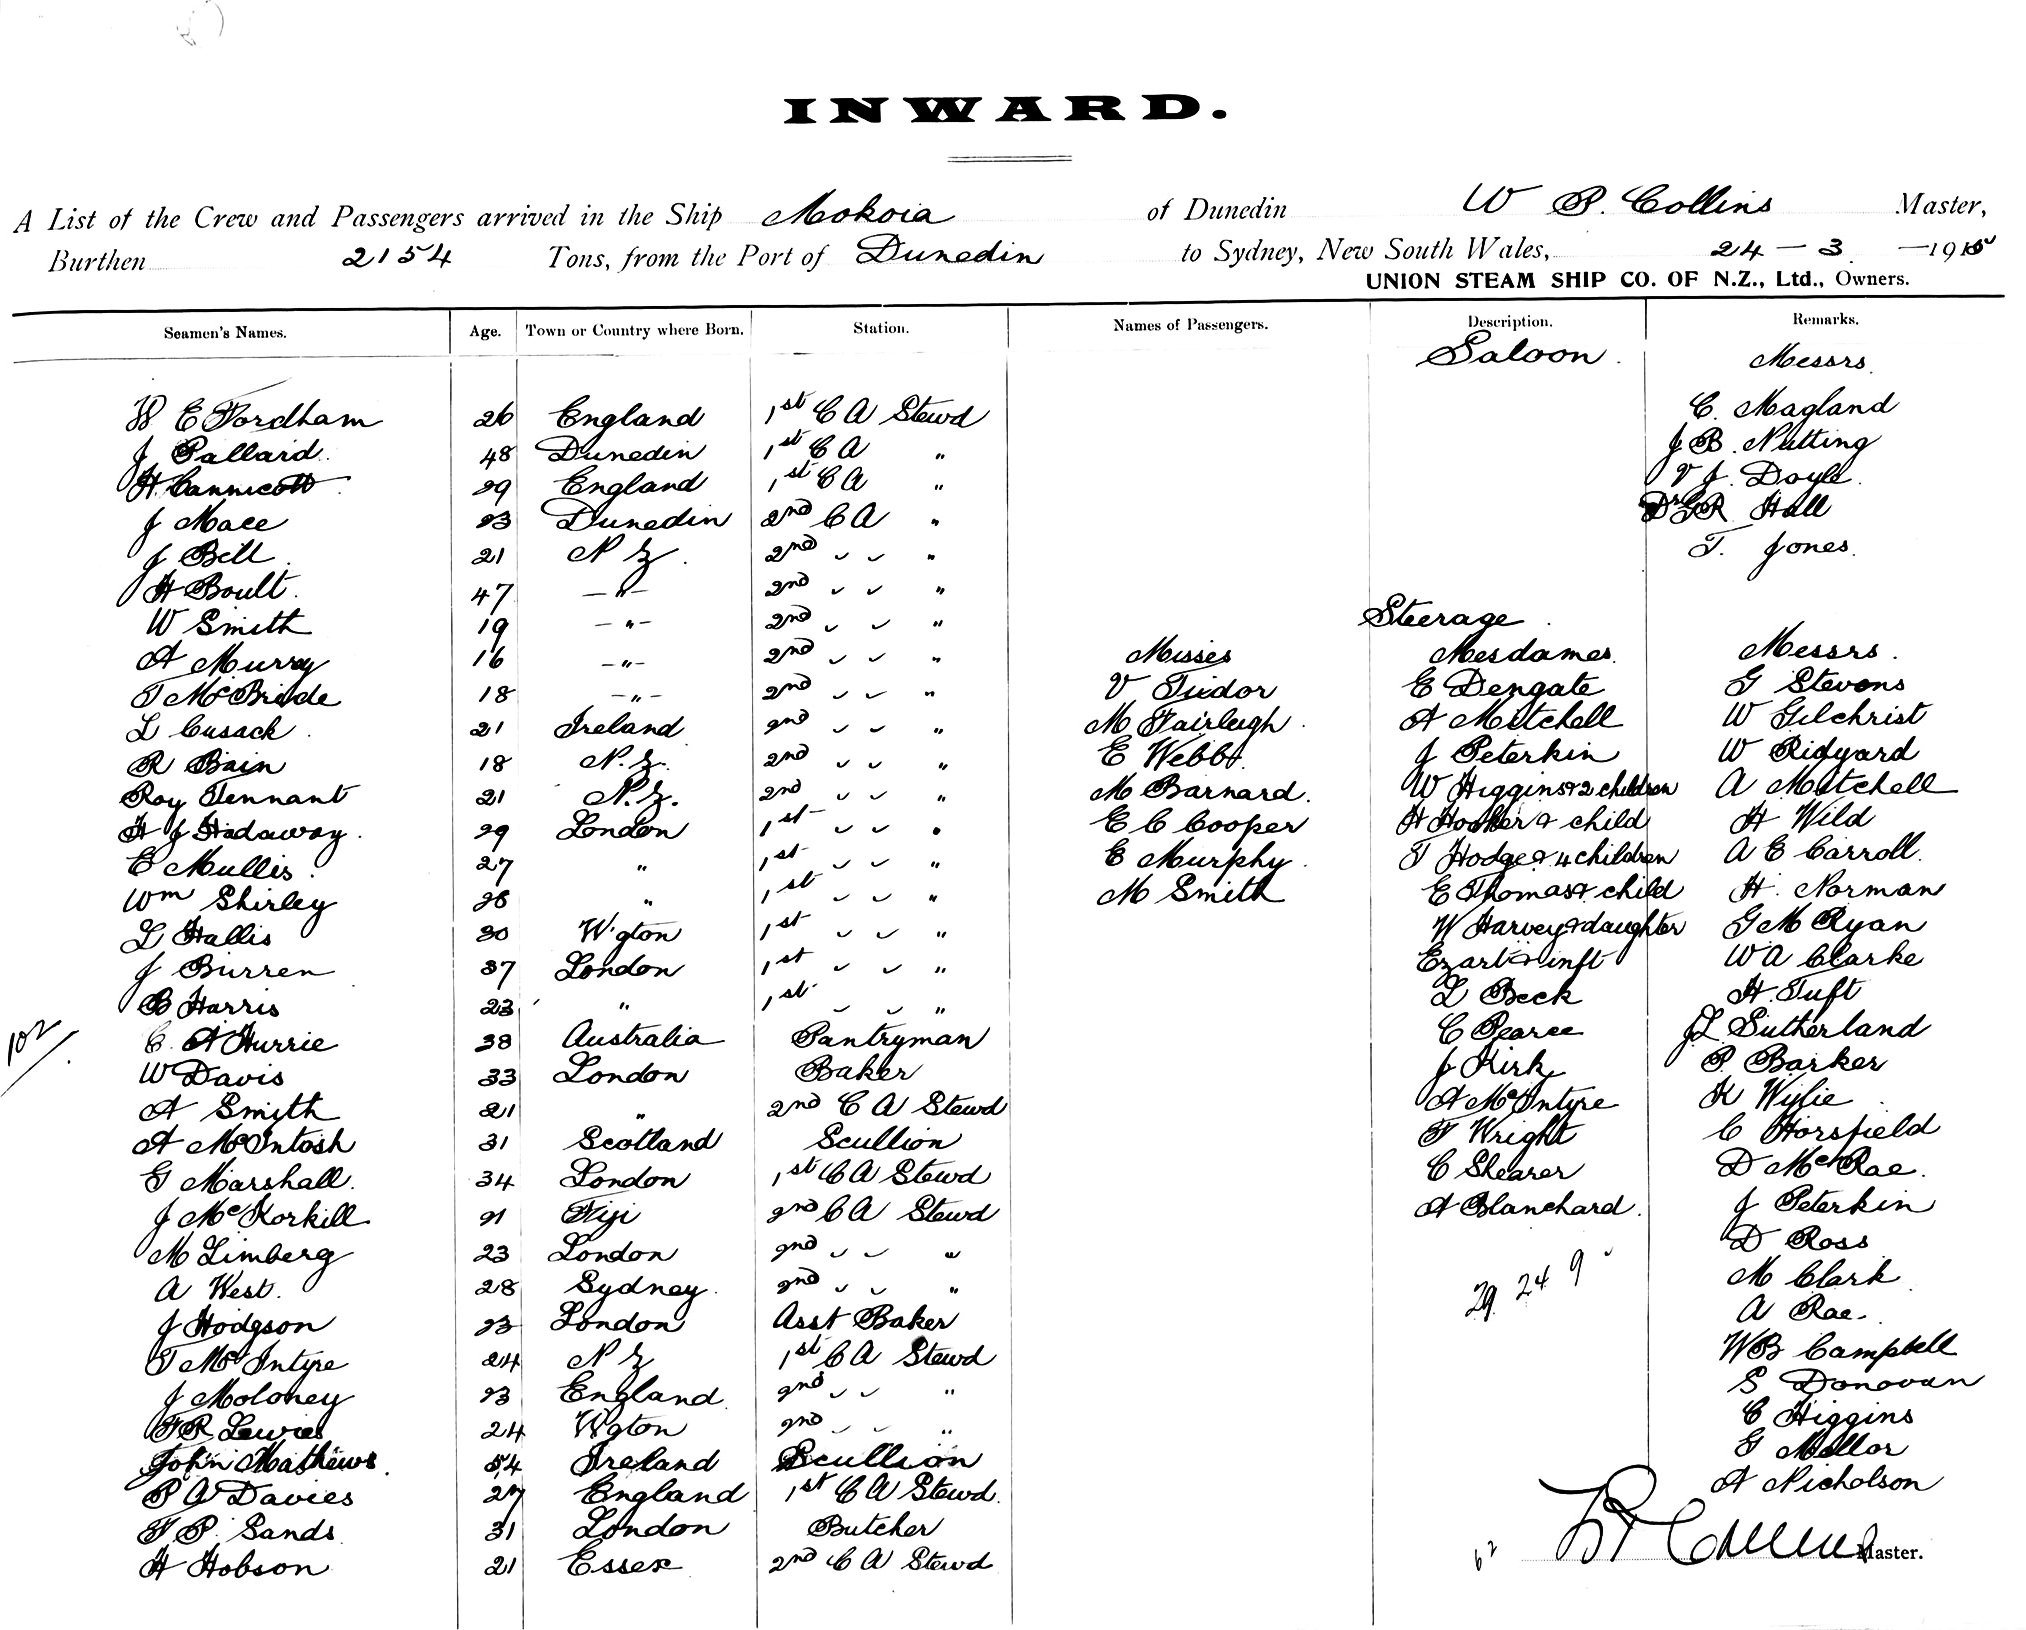 INWARD.
A List of the Crew and Passengers arrived in the Ship Mokoia of Dunedin W P. Collins Master,
Burthen 2154 Tons, from the Port of Dunedin to Sydney, New South Wales, 24 — 3 — 1915
UNION STEAM SHIP CO. OF N.Z., Ltd., Owners.
Seamen's Names. Age. Town or Country where Born. Station. Names of Passengers. Description. Remarks.
Saloon. Messrs
W E Fordham 26 England 1st C A Stewd C. Magland
J Pallard. 48 Dunedin 1st C A " J B. Nutting
H Cannicott 29 England 1st C A " V J. Doyle.
J Mace 23 Dunedin 2nd C A " Dr G R Hall
J Bell 21 N Z. 2nd " " " T. Jones.
H Boult. 47 — " — 2nd " " "
W Smith 19 — " — 2nd " " " Steerage.
A Murray 16 — " — 2nd " " " Misses Mesdames. Messrs.
T McBride 18 — " — 2nd " " " V Tudor E Dengate G Stevens
L Cusack. 21 Ireland 2nd " " " M Fairleigh. A Mitchell W Gilchrist
R Bain 18 N. Z. 2nd " " " E Webb. J Peterkin W Ridyard
Roy Tennant 21 N. Z. 2nd " " " M Barnard. W Higgins & 2 children A Mitchell
H J Hadaway. 29 London 1st " " " E C Cooper H Hooker & child H Wild
E Mullis. 27 " 1st " " " E Murphy. T Hodge & 4 children A E Carroll.
Wm Shirley 26 " 1st " " " M Smith E Thomas & child H. Norman
L Hallis 30 W'gton 1st " " " W Harvey & daughter G M Ryan
J Burren 37 London 1st " " " Ezart & inft W A Clarke
B Harris 23 " 1st " " " L Beck H. Tuft
102 C. A Hurrie 38 Australia Pantryman C Pearce J L Sutherland
W Davis 33 London Baker J Kirk P Barker
A Smith 21 " 2nd C A Stewd A McIntyre K Wylie.
A McIntosh 31 Scotland Scullion F Wright C Horsfield
G Marshall. 34 London 1st C A Stewd C Shearer D McRae.
J McKorkill 21 Fiji 2nd C A Stewd A Blanchard. J Peterkin
M Limberg 23 London 2nd " " " D Ross
A West. 28 Sydney. 2nd " " " 29 24 9 M Clark
J Hodgson 23 London Asst Baker A Rae.
T McIntyre 24 N Z 1st C A Stewd W B Campbell
J Moloney 23 England 2nd " " " S Donovan
F R Lewies 24 Wgton 2nd " " " C Higgins
John Mathews. 54 Ireland Scullion G Mellor
P A Davies 27 England 1st C A Stewd. A Nicholson
F P. Sands 31 London Butcher
H Hobson 21 Essex 2nd C A Stewd 62 W P Collins Master.